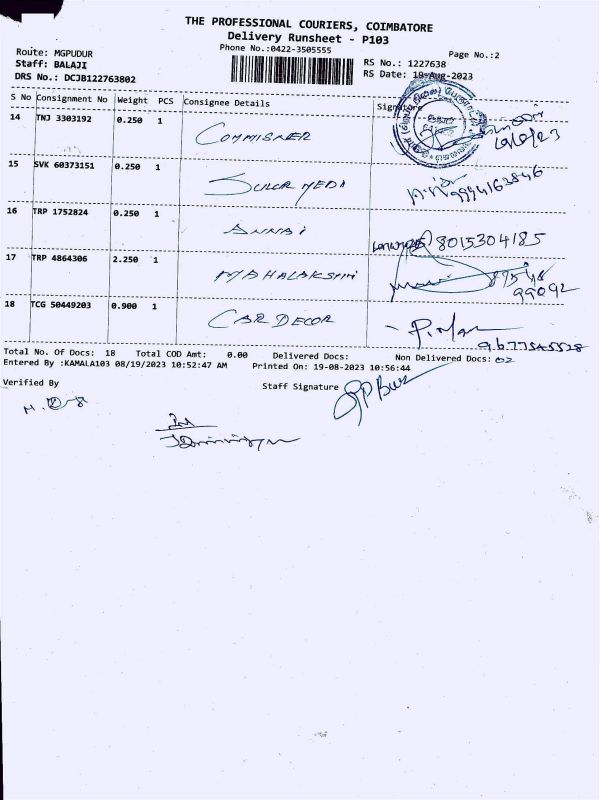 THE PROFESSIONAL COURIERS, COIMBATORE
Delivery Runsheet - P103
Phone No.:0422-3505555
Page No.:2
Route: MGPUDUR
Staff: BALAJI
DRS No.: DCJB122763802
RS No.: 1227638
RS Date: 19-Aug-2023
S No Consignment No Weight PCS Consignee Details Signature
14 TNJ 3303192 0.250 1 COMMISNER
15 SVK 60373151 0.250 1 9994163846
16 TRP 1752824 0.250 1 ANNAI 8015304185
17 TRP 4864306 2.250 1 MAHALAKSHMI
99092
18 TCG 50449203 0.900 1 CAR DECOR
Total No. Of Docs: 18 Total COD Amt: 0.00 Delivered Docs: Non Delivered Docs: 02
Entered By :KAMALA103 08/19/2023 10:52:47 AM Printed On: 19-08-2023 10:56:44
Verified By Staff Signature